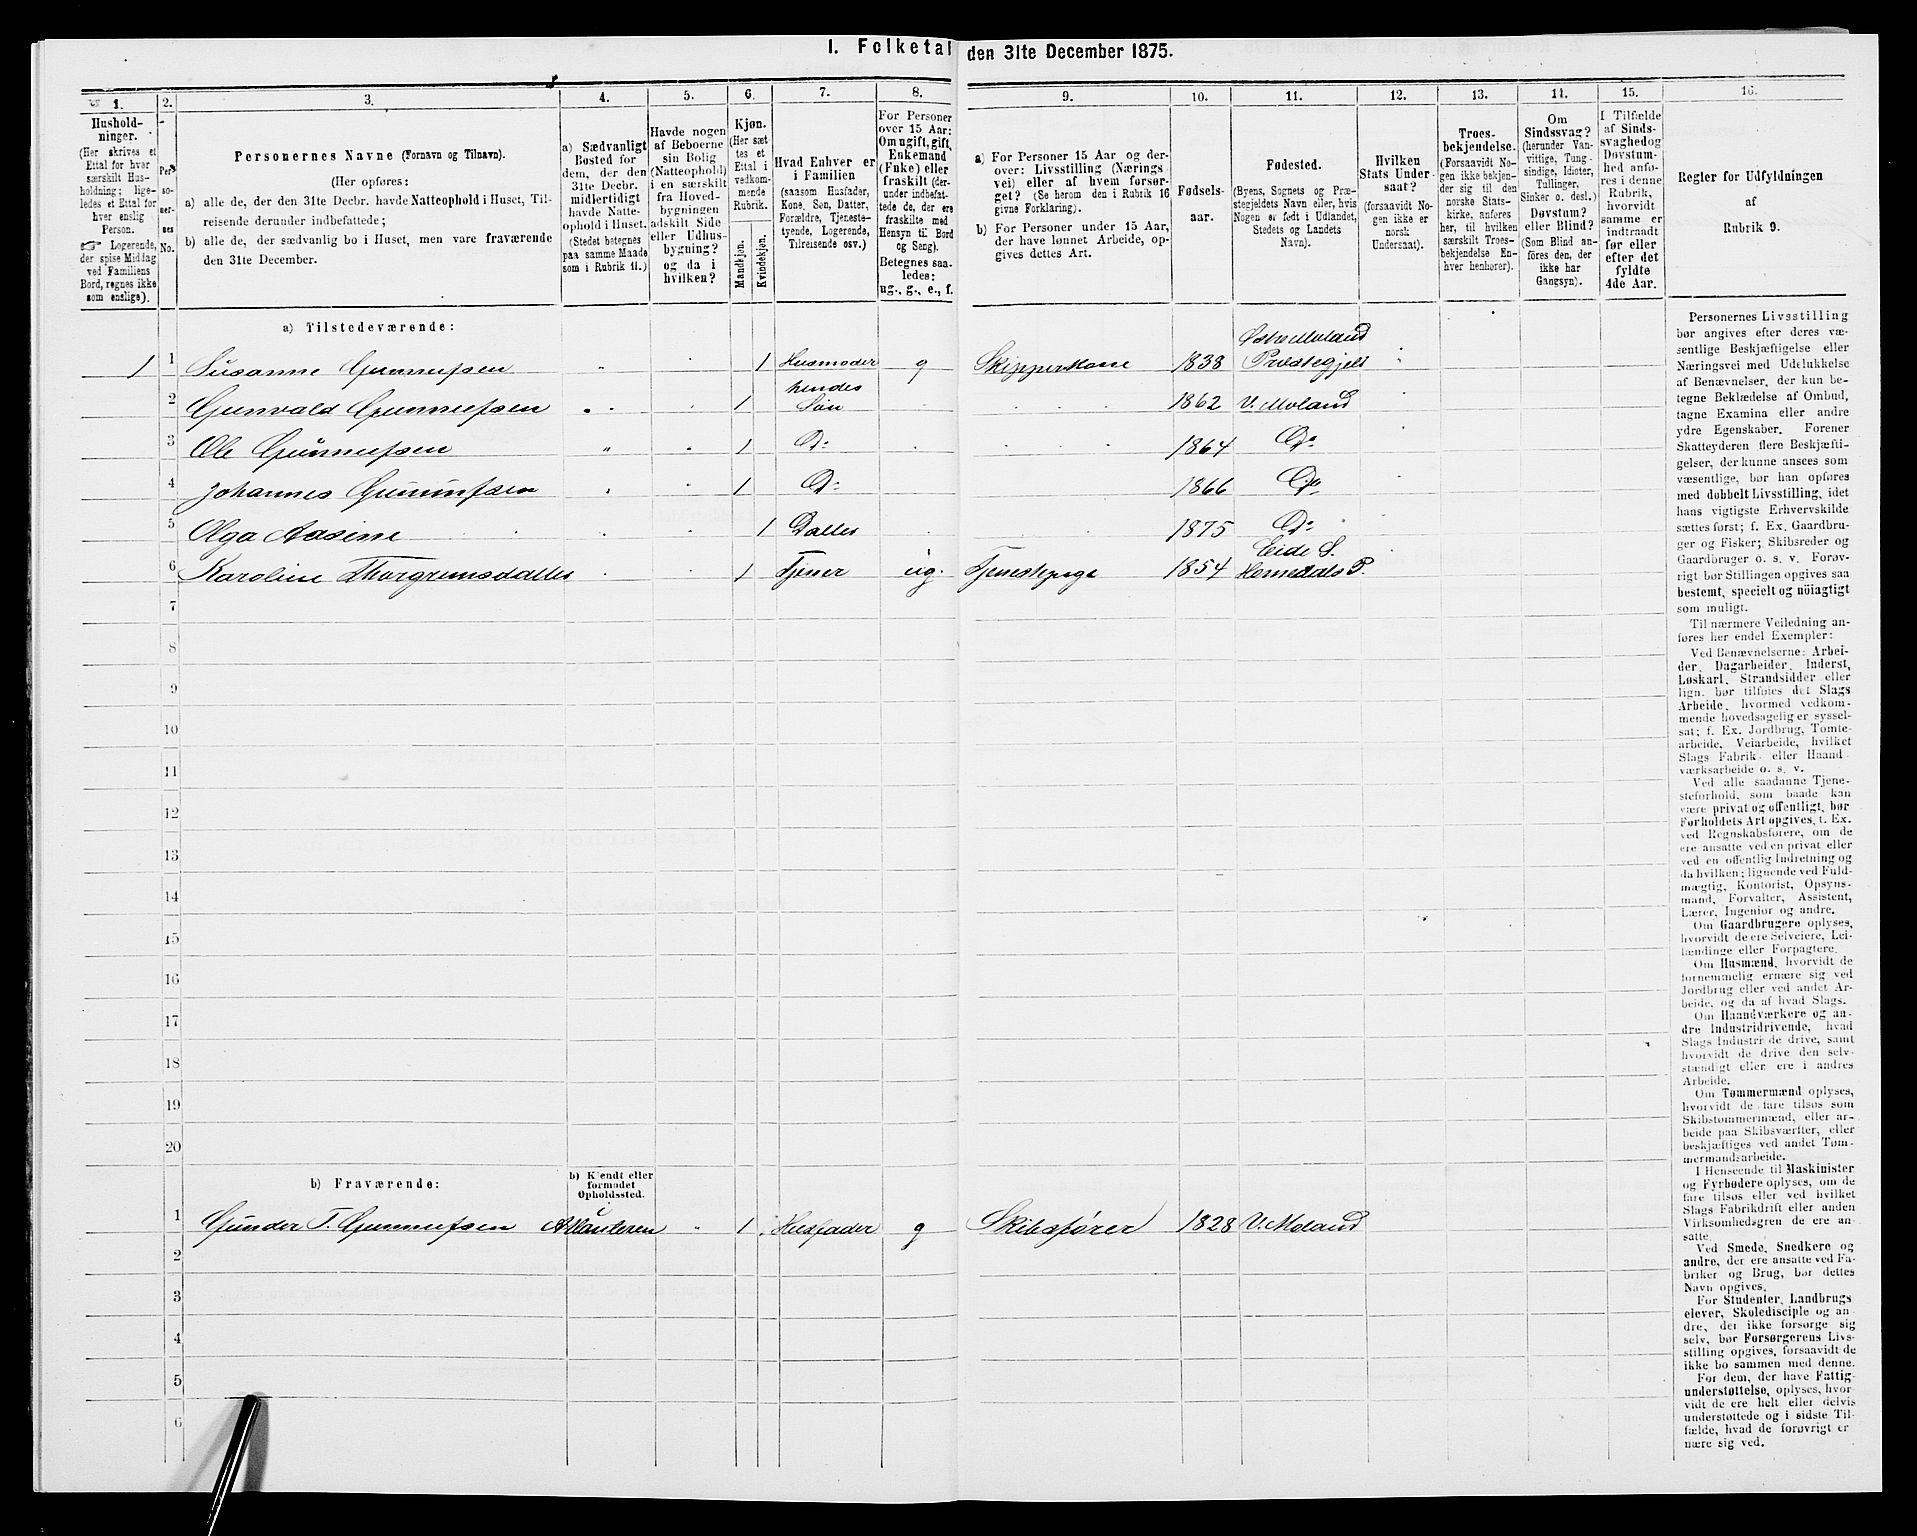 I. Folketal den 31te December 1875.
1.
2.
3.
4.
5.
6.
7.
8.
9.
10.
11.
12.
13.
14.
15.
16.
Hushold-
ninger.
(Her skrives et
Ettal for hver
særskilt Hus-
holdning; lige-
ledes et Ettal for
hver enslig
Person.
☞ Logerende,
der spise Middag
ved Familiens
Bord, regnes ikke
som enslige).
Per-
so-
ner-
nes
No.
Personernes Navne (Fornavn og Tilnavn).
(Her opføres:
a) alle de, der den 31te Decbr. havde Natteophold i Huset, Til-
reisende derunder indbefattede;
b) alle de, der sædvanlig bo i Huset, men vare fraværende
den 31te December.
a) Sædvanligt
Bosted for
dem, der den
31te Decbr.
midlertidigt
havde Natte-
ophold i Huset.
(Stedet betegnes
paa samme Maade
som i Rubrik 11.)
Havde nogen
af Beboerne
sin Bolig
(Natteophold)
i en særskilt
fra Hoved-
bygningen
adskilt Side-
eller Udhus-
bygning?
og da i
hvilken?
Kjøn.
(Her sæt-
tes et
Ettal i
vedkom-
mende
Rubrik.
Mandkjøn.
Kvindekjøn.
Hvad Enhver er
i Familien
(saasom Husfader,
Kone, Søn, Datter,
Forældre, Tjeneste-
tyende, Logerende,
Tilreisende osv.)
For Personer
over 15 Aar:
Om ugift, gift,
Enkemand
(Enke) eller
fraskilt (der-
under indbefat-
tede de, der ere
fraskilte med
Hensyn til Bord
og Seng).
Betegnes saa-
ledes:
ug., g., e., f.
a) For Personer 15 Aar og der-
over: Livsstilling (Nærings-
vei) eller af hvem forsør-
get? (Se herom den i Rubrik 16
givne Forklaring).
b) For Personer under 15 Aar,
der have lønnet Arbeide, op-
gives dettes Art.
Fødsels-
aar.
Fødested.
(Byens, Sognets og Præ-
stegjeldets Navn eller, hvis
Nogen er født i Udlandet,
Stedets og Landets
Navn).
Hvilken
Stats Under-
saat?
(forsaavidt No-
gen ikke er
norsk
Undersaat).
Troes-
bekjendelse.
(Forsaavidt No-
gen ikke bekjen-
der sig til den
norske Stats-
kirke, anføres
her, til hvilken
særskilt Troes-
bekjendelse En-
hver henhører).
Om
Sindssvag?
(herunder Van-
vittige, Tung-
sindige, Idioter,
Tullinger,
Sinker o. desl.)
Døvstum?
eller Blind?
(Som Blind an-
føres den, der
ikke har
Gangsyn).
I Tilfælde
af Sinds-
svaghed og
Døvstum-
hed anfø-
res i denne
Rubrik,
hvorvidt
samme er
indtraadt
før eller
efter det
fyldte
4de Aar.
Regler for Udfyldningen
af
Rubrik 9.
a) Tilstedeværende:
1 1 Susanne Gunnufsen 1 Husmoder g Skipperkone 1838 Østre Moland Præstegjeld
2 Gunvald Gunnufsen 1 hendes Søn 1862 V. Moland
3 Ole Gunnufsen 1 Do 1864 Do
4 Johannes Gunnufsen 1 Do 1866 Do
5 Olga Aasine 1 Datter 1875 Do
6 Karoline Thorgrimsdatter 1 Tjener ug. Tjenestepige 1854 Eide S. Homedals P.
7
8
9
10
11
12
13
14
15
16
17
18
19
20
b) Fraværende:
b) Kjendt eller
formodet
Opholdssted.
1 Gunder T. Gunnufsen Atlanteren 1 Husfader g Skibsfører 1828 V. Moland
2
3
4
5
6
Personernes Livsstilling
bør angives efter deres væ-
sentlige Beskjæftigelse eller
Næringsvei med Udelukkelse
af Benævnelser, der kun be-
tegne Beklædelse af Ombud,
tagne Examina eller andre
ydre Egenskaber. Forener
Skatteyderen flere Beskjæfti-
gelser, der kunne ansees som
væsentlige, bør han opføres
med dobbelt Livsstilling, idet
hans vigtigste Erhvervskilde
sættes først; f. Ex. Gaardbru-
ger og Fisker; Skibsreder og
Gaardbruger o. s. v. Forøv-
rigt bør Stillingen opgives saa
bestemt, specielt og nöiagtigt
som muligt.
Til nærmere Veiledning an-
føres her endel Exempler:
Ved Benævnelserne: Arbei-
der, Dagarbeider, Inderst,
Løskarl, Strandsidder eller
lign. bør tilføies det Slags
Arbeide, hvormed vedkom-
mende hovedsagelig er syssel-
sat; f. Ex. Jordbrug, Tomte-
arbeide, Veiarbeide, hvilket
Slags Fabrik- eller Haand-
værksarbeide o. s. v.
Ved alle saadanne Tjene-
steforhold, som baade kan
være privat og offentligt, bør
Forholdets Art opgives, t. Ex.
ved Regnskabsførere, om de
ere ansatte ved en privat eller
ved en offentlig Indretning og
da hvilken; lignende ved Fuld-
mægtig, Kontorist, Opsyns-
mand, Forvalter, Assistent,
Lærer, Ingeniør og andre.
Om Gaardbrugere oplyses,
hvorvidt de ere Selveiere, Lei-
lændinge eller Forpagtere.
Om Husmænd, hvorvidt de
fornemmelig ernære sig ved
Jordbrug eller ved andet Ar-
beide, og da af hvad Slags.
Om Haandværkere og an-
dre Industridrivende, hvad
Slags Industri de drive, samt
hvorvidt de drive den selv-
stændigt eller ere i andres
Arbeide.
Om Tømmermænd oplyses,
hvorvidt de fare tilsøs som
Skibstømmermænd, eller ar-
beide paa Skibsværfter, eller
beskjæftiges ved andet Tøm-
mermandsarbeide.
I Henseende til Maskinister
og Fyrbødere oplyses, om de
fare tilsøs eller ved hvilket
Slags Fabrikdrift eller anden
Virksomhedsgren de ere an-
satte.
Ved Smede, Snedkere og
andre, der ere ansatte ved Fa-
briker og Brug, bør dettes
Navn opgives.
For Studenter, Landbrugs-
elever, Skoledisciple og an-
dre, der ikke forsørge sig
selv, bør Forsørgerens Livs-
stilling opgives, forsaavidt de
ikke bo sammen med denne.
For dem, der have Fattig-
understøttelse, oplyses, hvor-
vidt de ere helt eller delvis
understøttede og i sidste Til-
fælde, hvad de forøvrigt er-
nære sig ved.